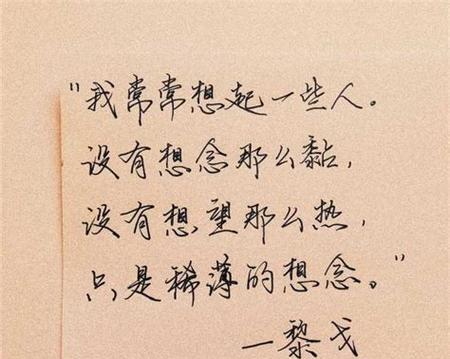 "我常常想起一些人。
没有想念那么黏,
没有想望那么热,
只是稀薄的想念。"
—黎戈